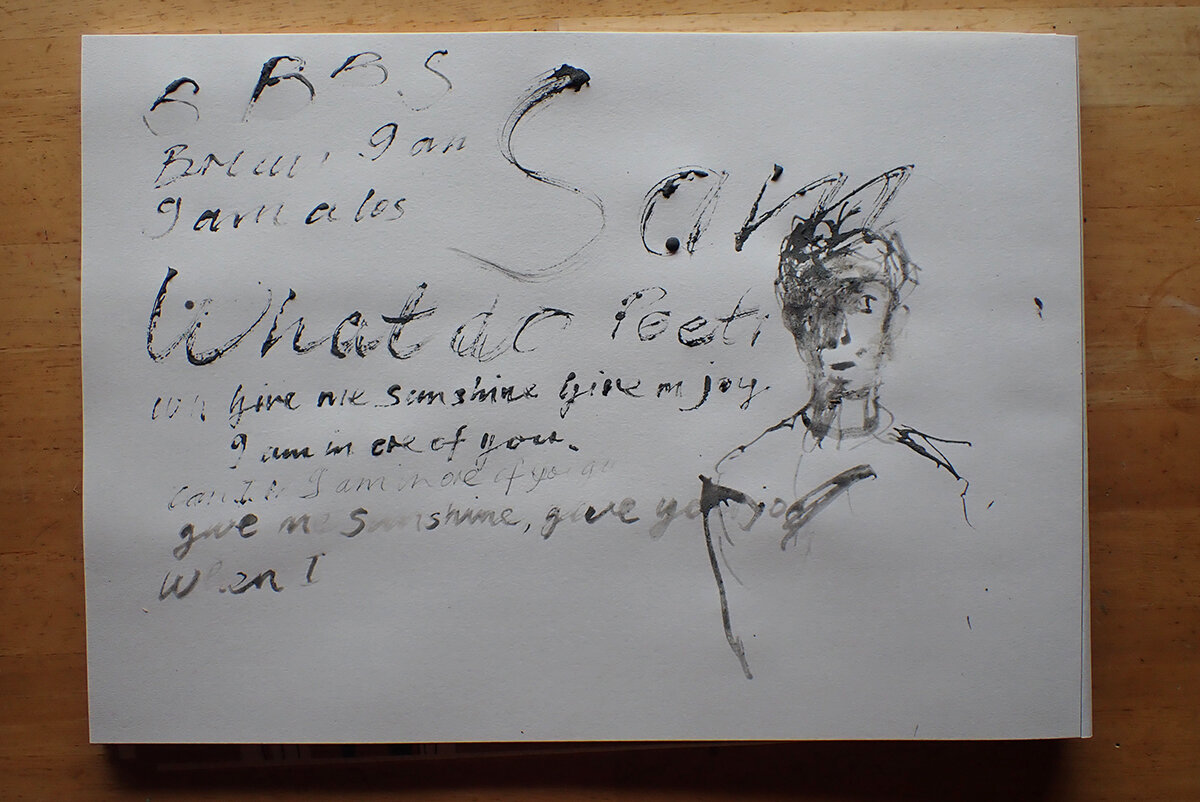 B B B S
I am
Sam
I am a los
What do Poets
Give me sunshine Give m joy.
I am in ore of you.
Can I I am in ore of you
give me sunshine, gave you joy
When I